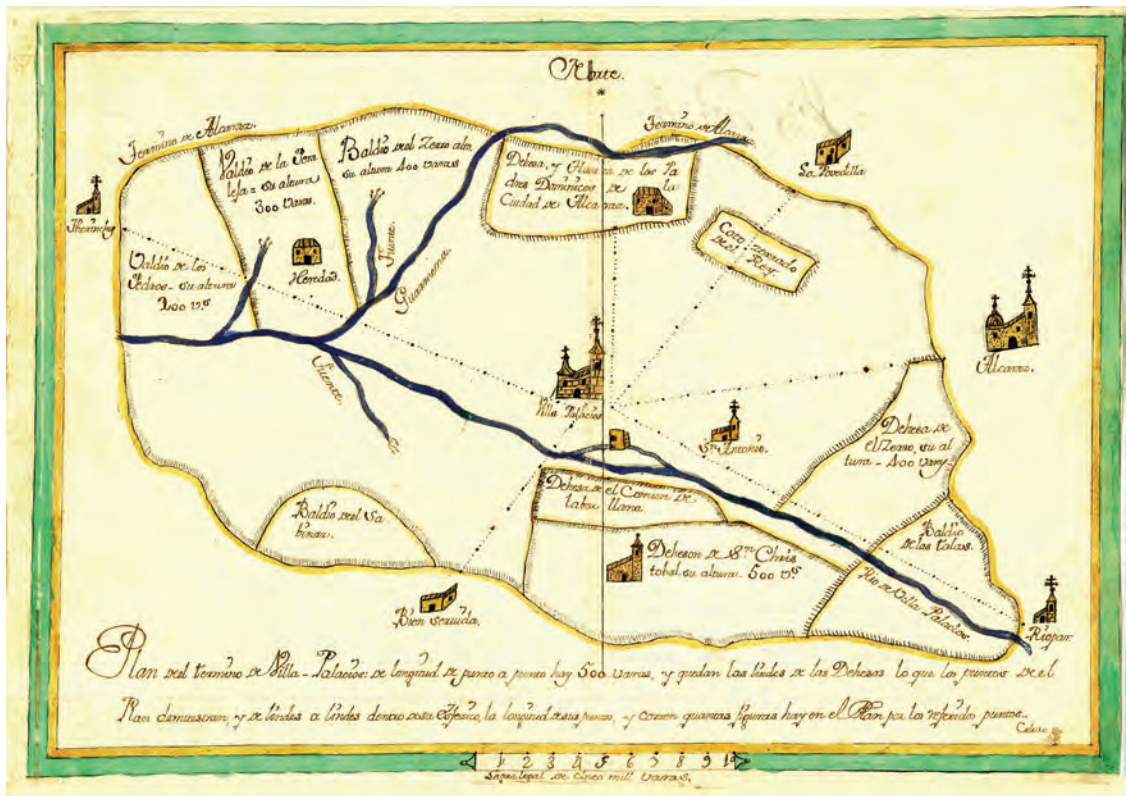 Norte.
Termino de Alcaraz.
Termino de Alcaraz
La Povedilla
Valdio de la Pera
leja = su altura
300 varas.
Baldio del Zerro alto,
su altura 400 varas
Dehesa, y Huerta de los Pa
dres Dominicos de la
Ciudad de Alcaraz.
Coto zerrado
de el Rey.
Valdio de los
Pedros - su altura
200 v.s
Heredad.
Fuente.
Guarmena
Fuente.
Alcaraz.
Villa Palacios
Sn. Antonio.
Dehesa de
el Zerro, su al
tura - 400 varas
Dehesa de el Comun de
llana.
Baldio del Sa
binar.
Baldio
de las talas.
Deheson de Sn. Chris
tobal su altura - 500 v.s
Rio de Villa Palacios.
Bien servida.
Riopar.
Plan del termino de Villa-Palacios: de longitud de punto a punto hay 500 varas, y quedan las lindes de las Dehesas lo que los puntos de el
Plan demuestran, y de lindes a lindes dentro de su la longitud de sus puntos, y corren quantas figuras hay en el Plan por los referidos puntos..
1 2 3 4 5 6 7 8 9 10
Legua legal de cinco mill varas.